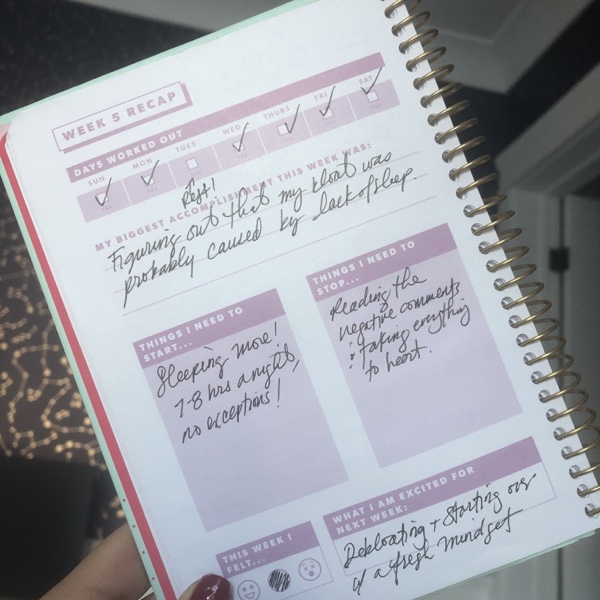 WEEK 5 RECAP
DAYS WORKED OUT
SUN MON TUES WED THURS FRI SAT
Rest!
MY BIGGEST ACCOMPLISHMENT THIS WEEK WAS:
Figuring out that my bloat was
probably caused by lack of sleep.
THINGS I NEED TO
START...
Sleeping more!
7-8 hrs a night,
no exceptions!
THINGS I NEED TO
STOP...
Reading the
negative comments
& taking everything
to heart.
THIS WEEK I
FELT...
WHAT I AM EXCITED FOR
NEXT WEEK:
Debloating + Starting over
w/ a fresh mindset